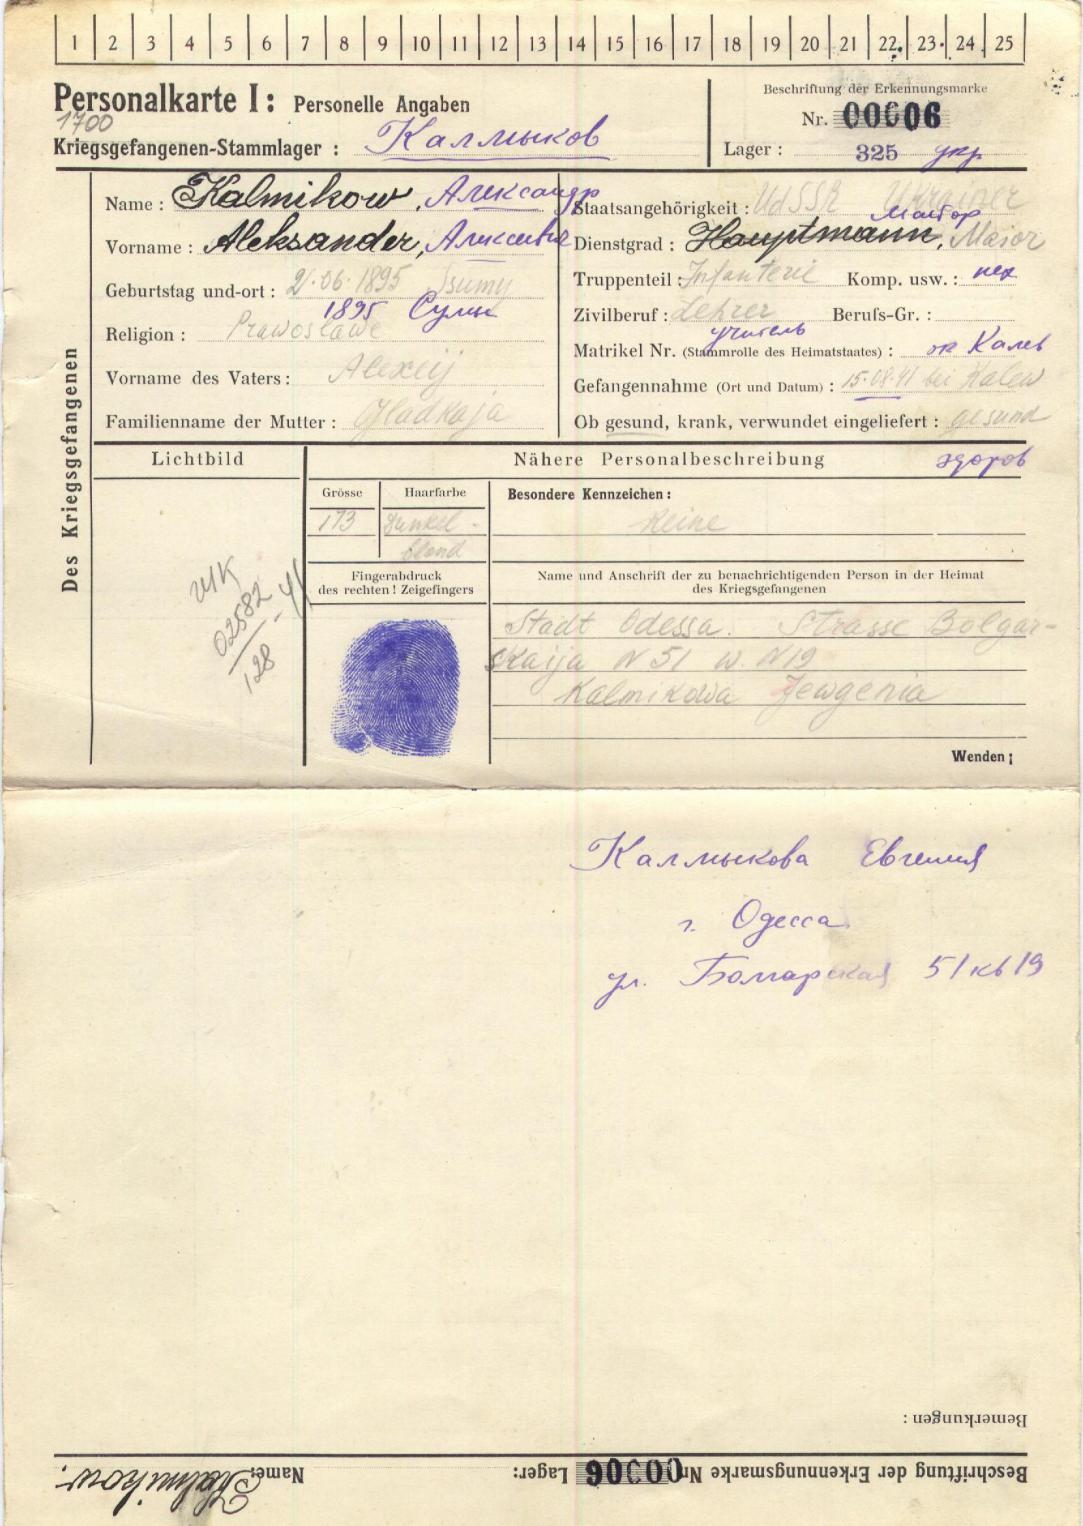 1 2 3 4 5 6 7 8 9 10 11 12 13 14 15 16 17 18 19 20 21 22 23 24 25
Personalkarte I: Personelle Angaben
1700
Kriegsgefangenen-Stammlager: Калмыков
Beschriftung der Erkennungsmarke
Nr. 00006
Lager: 325 укр
Des Kriegsgefangenen
Name: Kalmikow, Александр
Vorname: Aleksander, Алексеевич
Geburtstag und-ort: 21.06.1895 Ssumy
1895 Сумы
Religion: Prawoslawe
Vorname des Vaters: Alexeij
Familienname der Mutter: Gladkaja
Staatsangehörigkeit: UdSSR Ukrainer
майор
Dienstgrad: Hauptmann, Major
Truppenteil: Infanterie Komp. usw.: пех
Zivilberuf: Lehrer Berufs-Gr.:
учитель
Matrikel Nr. (Stammrolle des Heimatstaates): ок Калев
Gefangennahme (Ort und Datum): 15.08.41 bei Kalew
Ob gesund, krank, verwundet eingeliefert: gesund
здоров
Lichtbild
Nähere Personalbeschreibung
Grösse Haarfarbe
173 Dunkel-
blond
Besondere Kennzeichen:
Keine
Fingerabdruck
des rechten! Zeigefingers
Name und Anschrift der zu benachrichtigenden Person in der Heimat
des Kriegsgefangenen
Stadt Odessa. Strasse Bolgar-
skaija N 51 w. N 19
Kalmikowa Jewgenia
02582
128
Wenden;
Калмыкова Евгения
г. Одесса
ул. Болгарская 51 кв 19
Bemerkungen:
Beschriftung der Erkennungsmarke Nr. 00006 Lager: Name: Kalmikow.